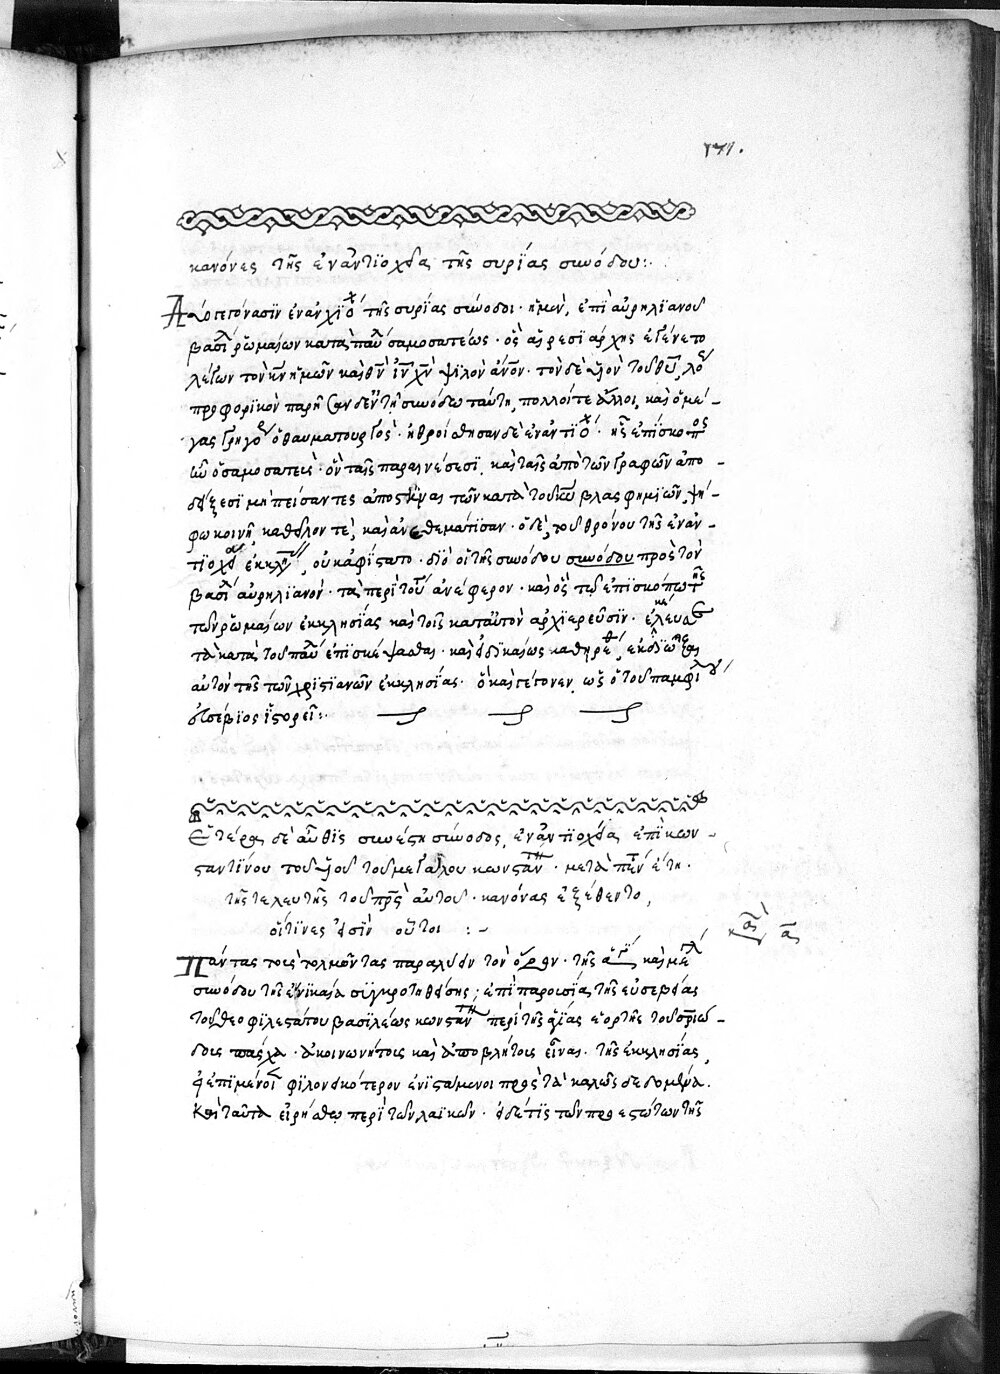 171.
κανόνες τῆς ἐν ἀντϊοχεία τῆς συρίας συνόδου:.
Δύο γεγόνασϊν ἐν ἀντϊοχ τῆς συρΐας σύνοδοι· ἡ μὲν, ἐπὶ αὐρηλϊανοῦ
βασϊλ ῥωμαίων κατὰ παύλ σαμοσατέως· ὃς αἱρέσεϊ ἀρχης ἐγένετο
λέγων τὸν κν ἡμῶν καὶ θν ιν χν ψϊλὸν ανον· τὸν δὲ υἱὸν τοῦ θυ, λόγ
προφορϊκὸν παρῆσαν δὲ ἐν τῆ συνόδω ταύτη, πολλοί τε ἄλλοι, καὶ ὁ μέ-
γας γρηγό ὁ θαυματουργὸς· ἠθροίσθησαν δὲ ἐν ἀντϊοχ· ἧς ἐπίσκοπος
ἦν ὁ σαμοσατεὺς· ὃν ταῖς παραινέσεσϊ, καὶ ταῖς ἀπὸ τῶν γραφῶν ἀπο-
δείξεσϊ μὴ πείσαντες ἀποστῆναι τῶν κατὰ τοῦ κυ βλασφημϊῶν, ψή-
φω κοινῆ καθεῖλον τὲ, καὶ ἀνεθεμάτϊσαν· ὁ δὲ, τοῦ θρόνου τῆς ἐν ἀν-
τϊοχεία ἐκκλη, οὐκ ἀφίστατο· δϊὸ οἱ τῆς συνόδου συνόδου πρὸς τὸν
βασϊλ αὐρηλϊανὸν· τὰ περὶ τού ἀνέφερον· καὶ ὃς τῶ ἐπϊσκόπω τῆς
τῶν ῥωμαίων ἐκκλησΐας καὶ τοῖς κατ αὐτὸν ἀρχϊερεῦσϊν· ἐκέλευσε
τὰ κατὰ τοῦ παύλ ἐπϊσκέψασθαι· καὶ εἰ δικαίως καθηρέθ, ἐκδϊῶξαι
αὐτὸν τῆς τῶν χρϊστϊανῶν ἐκκλησίας· ὃ καὶ γέγονεν, ὡς ὁ τοῦ παμφίλου
εὐσέβϊος ἱστορεῖ:.
Ἑτέρα δὲ αὖθϊς συνέστη σύνοδος, ἐν ἀντϊοχεία, ἐπὶ κων-
σταντίνου τοῦ υἱοῦ τοῦ μεγάλου κωνσταν· μετὰ πέντ ἔτη·
τῆς τελευτῆς τοῦ πρς αὐτοῦ· κανόνας ἐξέθεντο,
οἵτϊνες εἰσὶν οὗτοι :-
α α
Πάντας τοὺς τολμῶντας παραλύειν τὸν ὅρον· τῆς ἁγί καὶ μεγάλ
συνόδου τῆς ἐν νϊκαία συγκροτηθείσης, ἐπὶ παρουσία τῆς εὐσεβείας
τοῦ θεοφϊλεστάτου βασϊλέως κωνσταν περὶ τῆς ἁγίας ἑορτῆς τοῦ σριώ-
δους πάσχα· ἀκοινωνήτους καὶ ἀποβλήτους εἶναι· τῆς ἐκκλησίας,
εἰ ἐπϊμένοι φϊλονεικότερον ἐνϊστάμενοι πρὸς τὰ καλῶς δεδομένα.
Καὶ ταῦτα εἰρήσθω περὶ τῶν λαϊκῶν· εἰ δέ τϊς τῶν προεστώτων τῆς